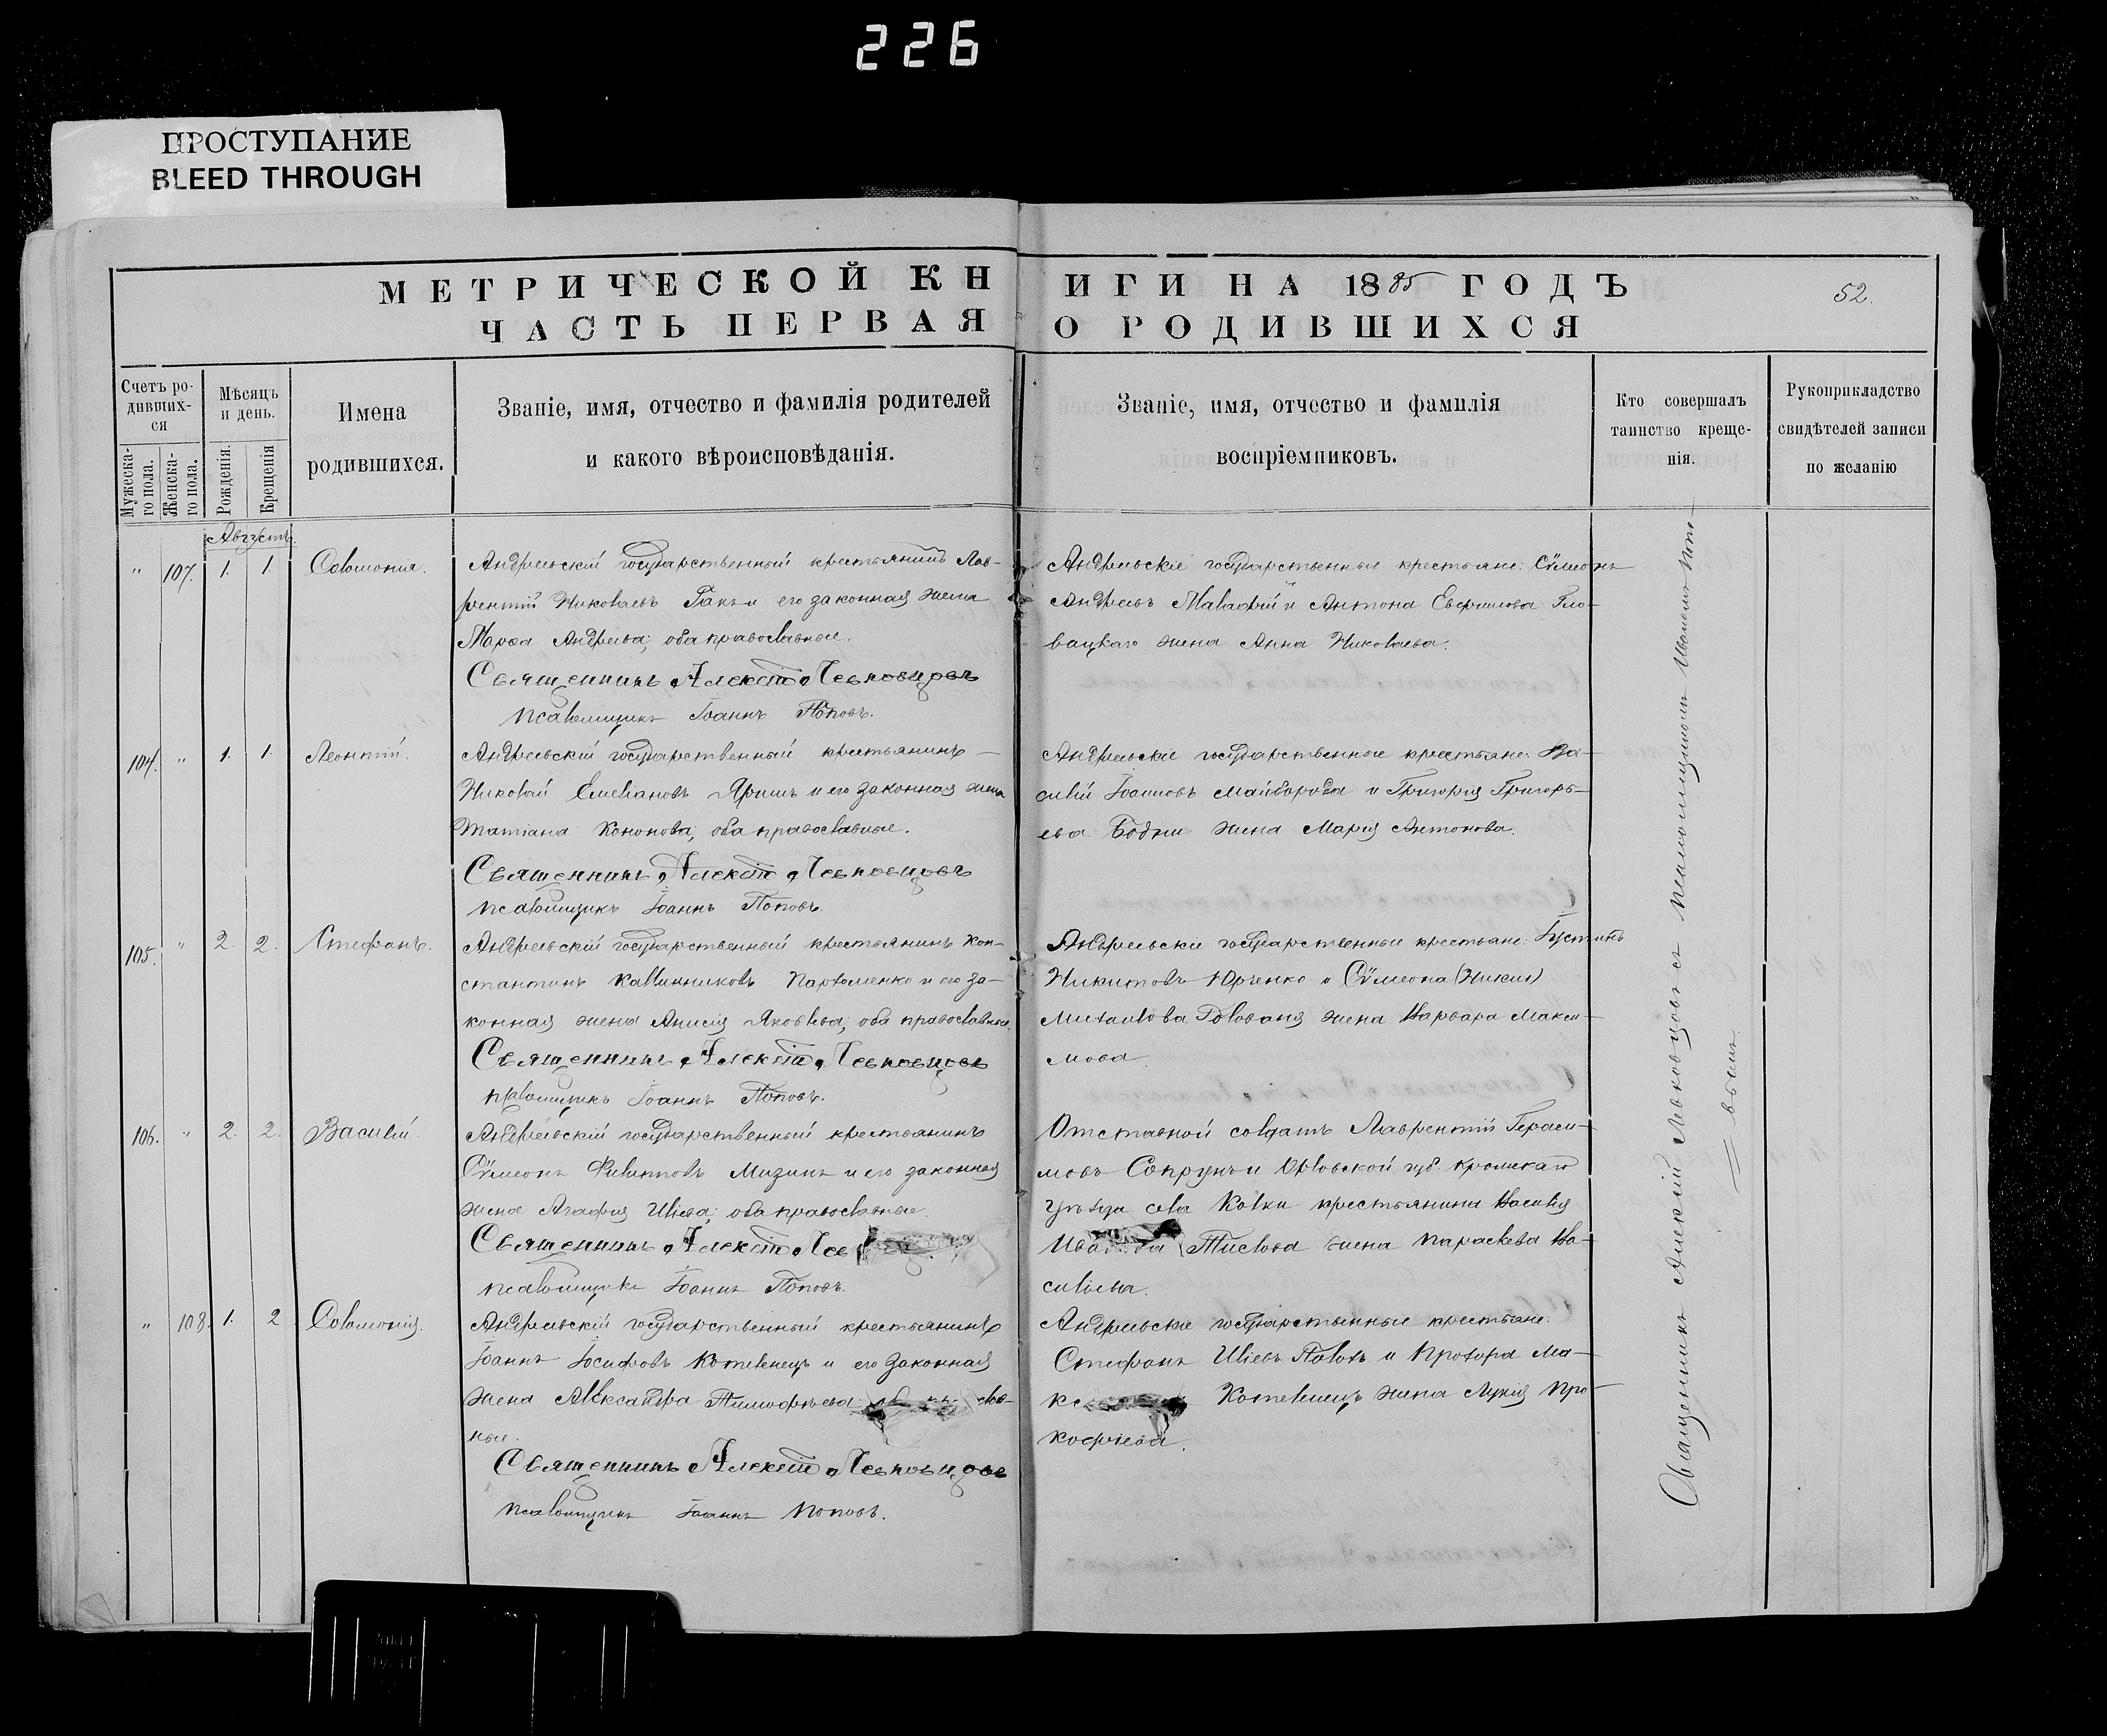 226
ПРОСТУПАНИЕ
BLEED THROUGH
МЕТРИЧЕСКОЙ КНИГИ НА 1885 ГОДЪ
52.
ЧАСТЬ ПЕРВАЯ О РОДИВШИХСЯ
Счетъ ро-
дивших-
ся
Мужеска-
го пола.
Женска-
го пола.
Мѣсяцъ
и день.
Рожденія.
Крещенія
Имена
родившихся.
Званіе, имя, отчество и фамилія родителей
и какого вѣроисповѣданія.
Званіе, имя, отчество и фамилія
воспріемниковъ.
Кто совершалъ
таинство креще-
нія.
Рукоприкладство
свидѣтелей записи
по желанію
Августъ.
" 107. 1. 1. Соломонія.
Андреевскій государственный крестьянинъ Лав-
рентій Николаевъ Гакъ и его законная жена
Марѳа Андреева; оба православные.
Священникъ Алексій Левковцовъ
псаломщикъ Іоаннъ Поповъ.
Андреевскіе государственные крестьяне: Сѵмеонъ
Андреевъ Малафій и Антона Евфимова Гло-
вацкаго жена Анна Николаева.
104. " 1. 1. Леонтій.
Андреевскій государственный крестьянинъ
Николай Емеліановъ Яришъ и его законная жена
Татіана Кононова; оба православные.
Священникъ Алексій Левковцовъ
псаломщикъ Іоаннъ Поповъ.
Андреевскіе государственные крестьяне: Ва-
силій Іоанновъ Майборода и Григорія Григорь-
ева Бодни жена Марія Антонова.
105. " 2. 2. Стефанъ.
Андреевскій государственный крестьянинъ Кон-
стантинъ Каллинниковъ Пархоменко и его за-
конная жена Анисія Яковлева; оба православные.
Священникъ Алексій Левковцовъ
псаломщикъ Іоаннъ Поповъ.
Андреевскіе государственные крестьяне: Іустинъ
Никитовъ Юрченко и Сѵмеона
Михаилова Голованя жена Варвара Макси-
мова.
106. " 2. 2. Василій.
Андреевскій государственный крестьянинъ
Сѵмеонъ Филипповъ Мизинъ и его законная
жена Агафія Иліева; оба православные.
Священникъ Алексій Лев
псаломщикъ Іоаннъ Поповъ.
Отставной солдатъ Лаврентій Гераси-
мовъ Сопрунъ и Орловской губ. Кромскаго
уѣзда села Колки крестьянина Василія
Иванова жена Параскева Ва-
силіева.
" 108. 1. 2 Соломонія.
Андреевскій государственный крестьянинъ
Іоаннъ Іосифовъ Котелевецъ и его законная
жена Александра Тимофѣева; слав-
ные.
Священникъ Алексій Левковцовъ
псаломщикъ Іоаннъ Поповъ.
Андреевскіе государственные крестьяне:
Стефанъ Иліевъ и Прохора Ма-
кс Котелевецъ жена Лукія Про-
кофіева.
Священникъ Алексій Левковцовъ съ псаломщикомъ Іоанномъ Попо-
вымъ.